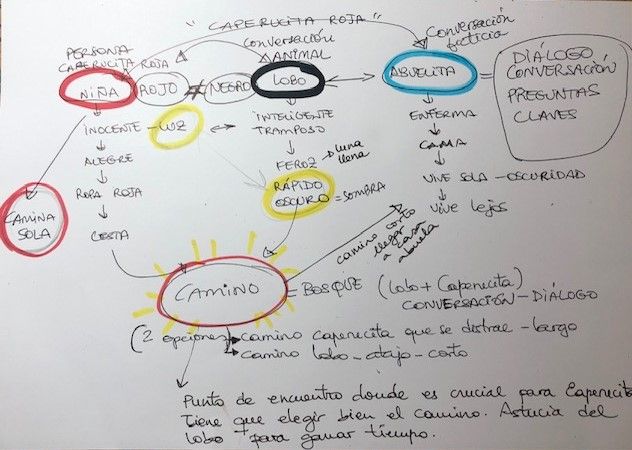 "CAPERUCITA ROJA"
PERSONA
CAPERUCITA ROJA
Conversación
ANIMAL
Conversación
ficticia
NIÑA
ROJO
≠
NEGRO
LOBO
ABUELITA
DIÁLOGO
CONVERSACIÓN
PREGUNTAS
CLAVES
INOCENTE - LUZ
INTELIGENTE
TRAMPOSO
ENFERMA
ALEGRE
FEROZ → luna
llena
CAMA
ROPA ROJA
RÁPIDO
OSCURO = SOMBRA
VIVE SOLA - OSCURIDAD
CAMINA
SOLA
CESTA
VIVE lejos
camino corto
llegar
a casa
abuela
CAMINO
= BOSQUE (Lobo + Caperucita)
CONVERSACIÓN - DIÁLOGO
(2 opciones) → camino caperucita que se distrae - largo
→ camino lobo - atajo - corto
Punto de encuentro donde es crucial para Caperucita
Tiene que elegir bien el camino. Astucia del
lobo para ganar tiempo.